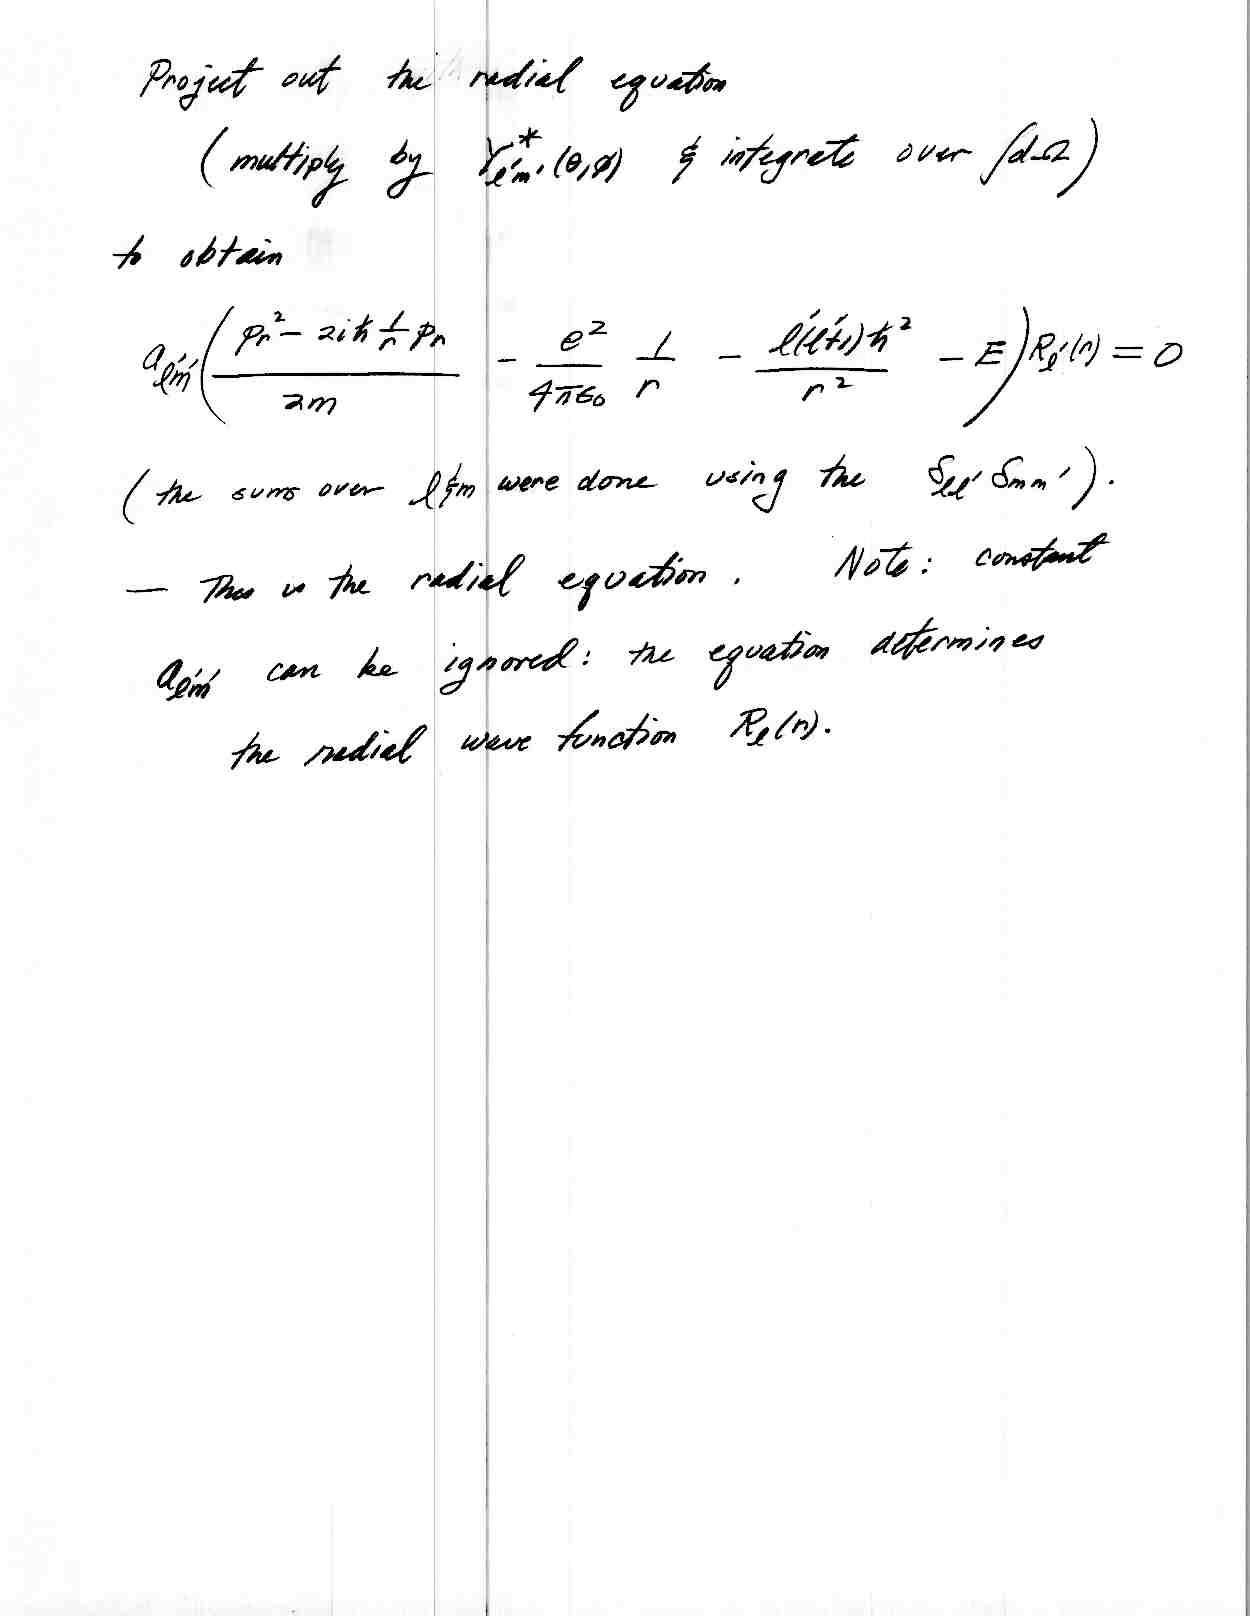 Project out the radial equation
(multiply by Y*ℓ'm'(θ,φ) & integrate over ∫dΩ)
to obtain
aℓ'm' ( (pr² − 2iħ 1/r pr) / 2m − e²/4πε₀ 1/r − ℓ'(ℓ'+1)ħ²/r² − E ) Rℓ'(r) = 0
(the sums over ℓ & m were done using the δℓℓ' δmm').
— This is the radial equation. Note: constant
aℓ'm' can be ignored: the equation determines
the radial wave function Rℓ(r).